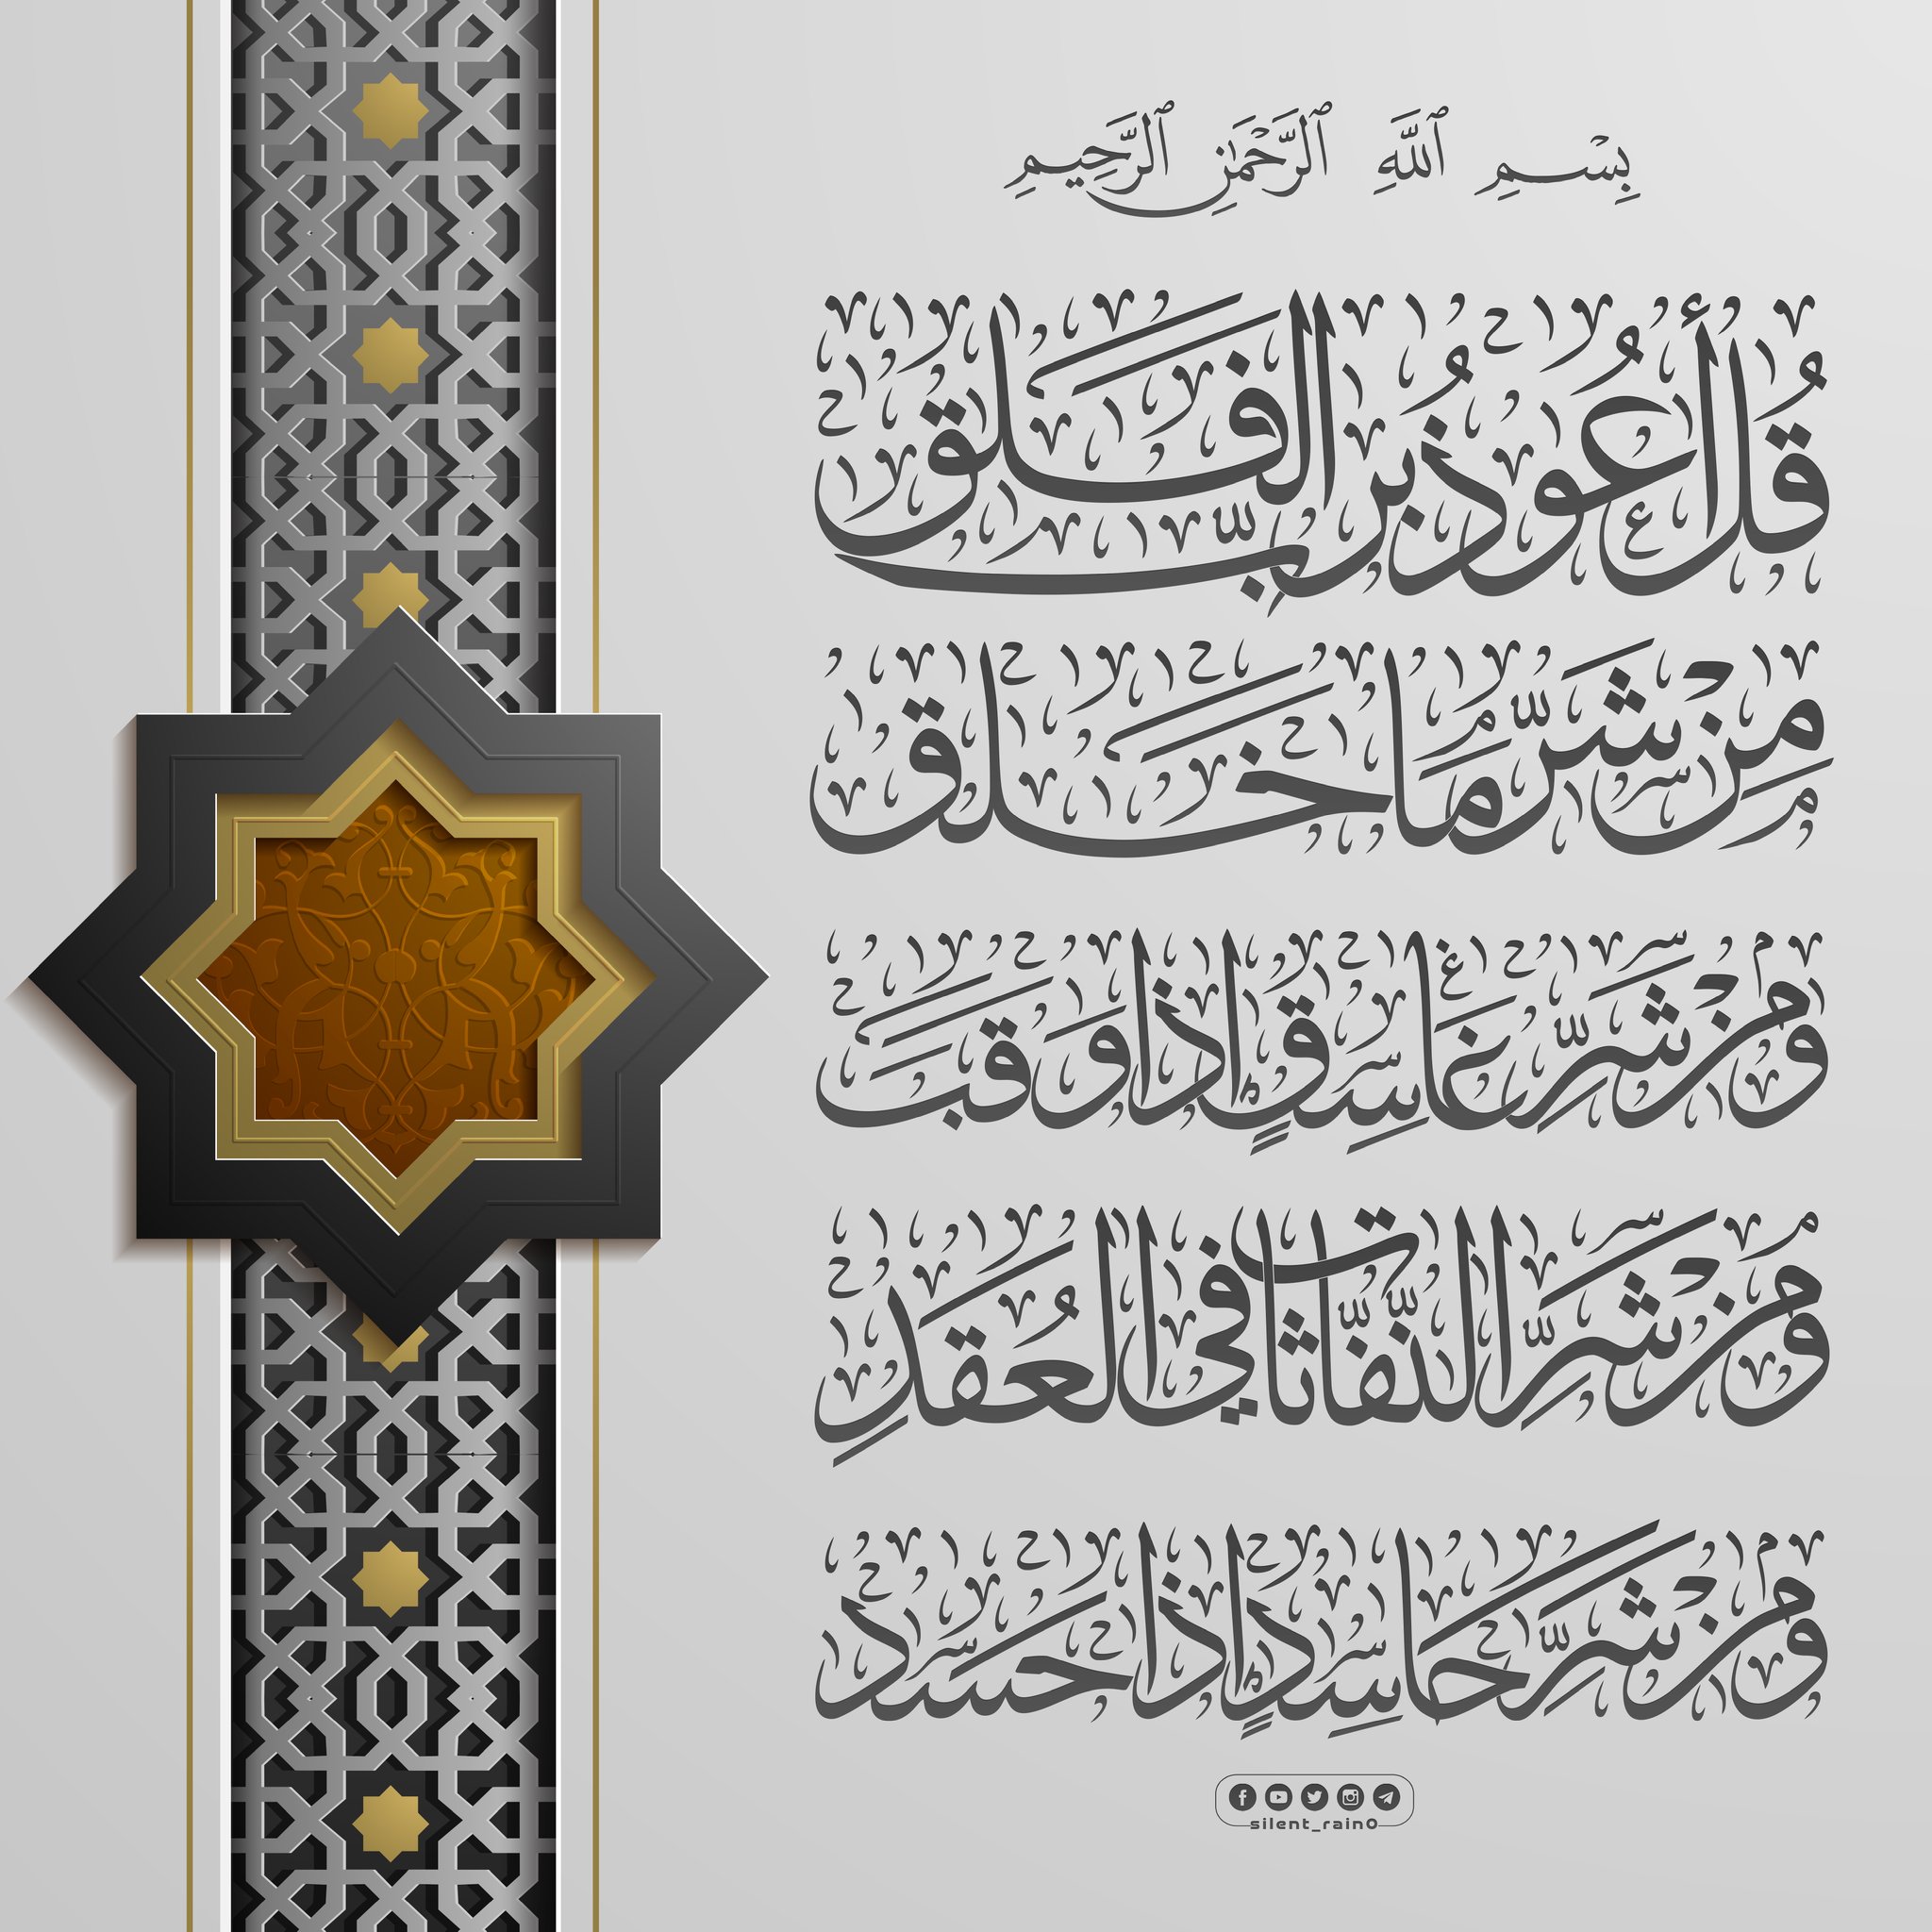 بِسْمِ ٱللَّهِ ٱلرَّحْمَٰنِ ٱلرَّحِيمِ
قُلْ أَعُوذُ بِرَبِّ الْفَلَقِ
مِنْ شَرِّ مَا خَلَقَ
وَمِنْ شَرِّ غَاسِقٍ إِذَا وَقَبَ
وَمِنْ شَرِّ النَّفَّاثَاتِ فِي الْعُقَدِ
وَمِنْ شَرِّ حَاسِدٍ إِذَا حَسَدَ
silent_rain0